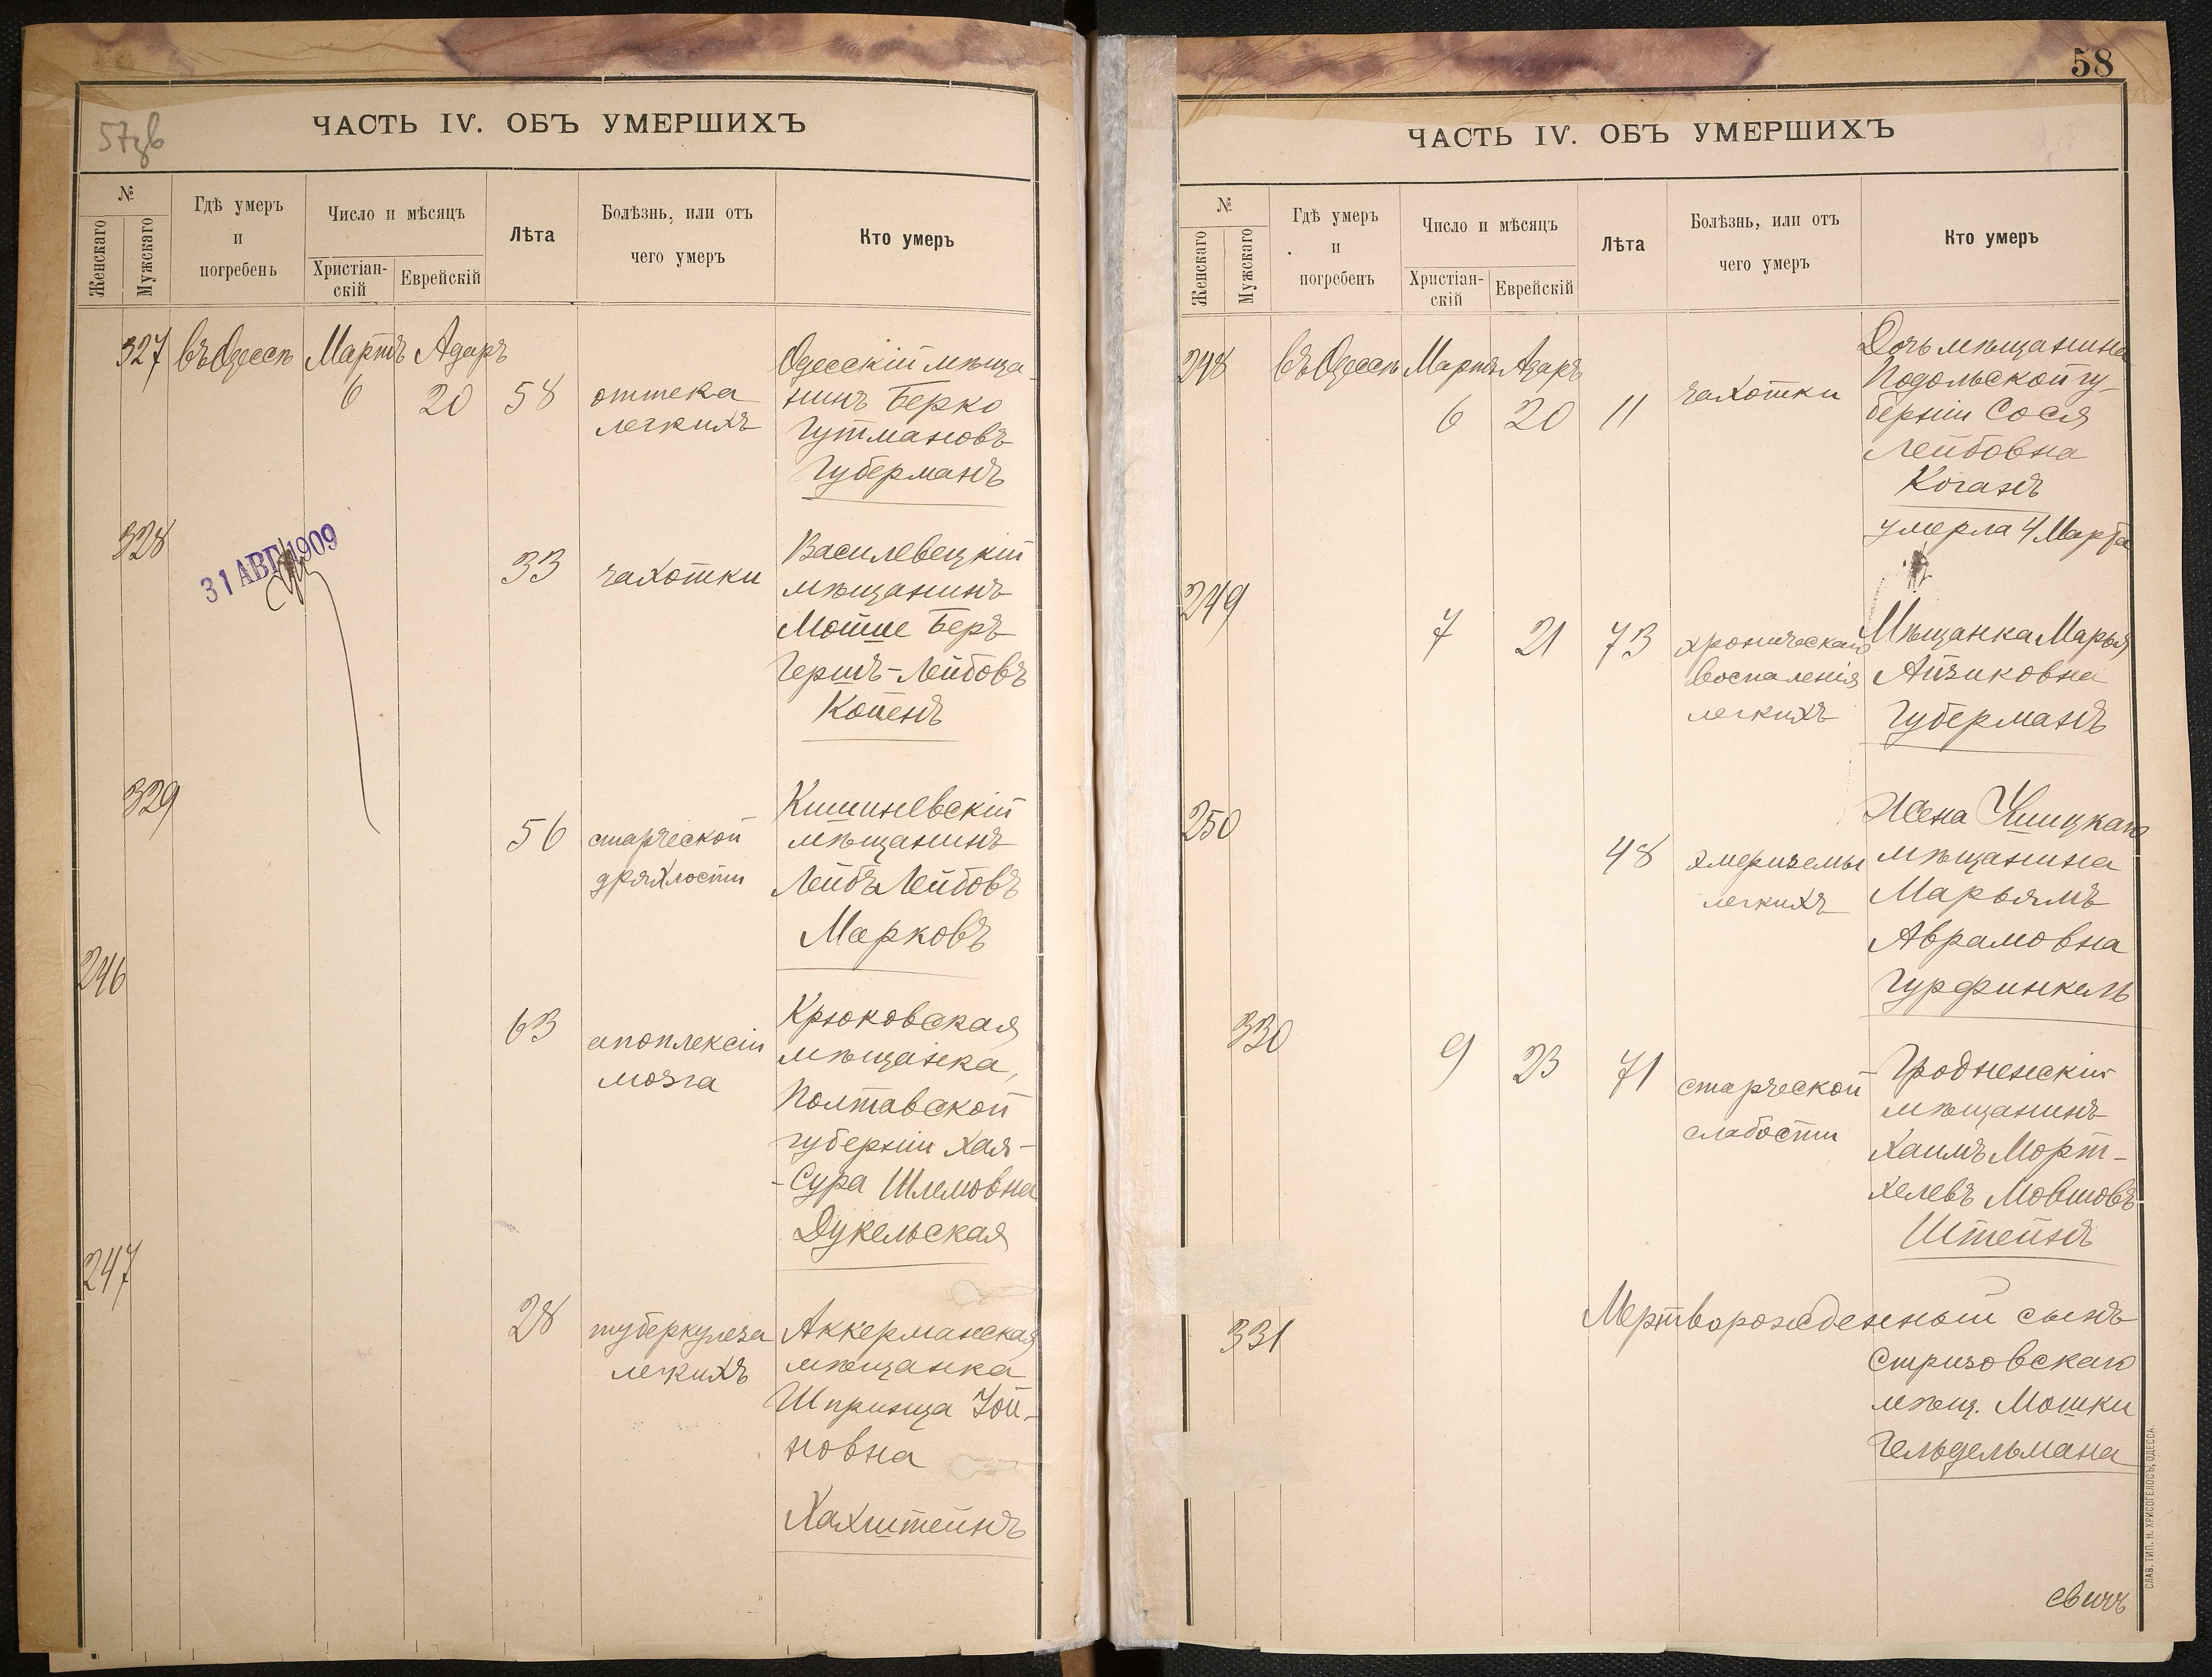 57зв
ЧАСТЬ IV. ОБЪ УМЕРШИХЪ
№
Женскаго
Мужскаго
Гдѣ умеръ
и
погребенъ
Число и мѣсяцъ
Христіан-
скій
Еврейскій
Лѣта
Болѣзнь, или отъ
чего умеръ
Кто умеръ
327 въ Одессѣ Мартъ Адаръ
6 20 58
оттека
легкихъ
Одесскій мѣща-
нинъ Берко
Гутмановъ
Губерманъ
328
31 АВГ 1909
33 чахотки
Василевецкій
мѣщанинъ
Мойше Беръ
Гершъ-Лейбовъ
Койенъ
329
56 старческой
дряхлости
Кишиневскій
мѣщанинъ
Лейбъ Лейбовъ
Марковъ
246
63 апоплексіи
мозга
Крюковская
мѣщанка,
Полтавской
губерніи Хая-
-Сура Шлемовна
Дукельская
247
28 туберкулеза
легкихъ
Аккерманская
мѣщанка
Шпринца Уой-
новна
Хахштейнъ
58
ЧАСТЬ IV. ОБЪ УМЕРШИХЪ
№
Женскаго
Мужскаго
Гдѣ умеръ
и
погребенъ
Число и мѣсяцъ
Христіан-
скій
Еврейскій
Лѣта
Болѣзнь, или отъ
чего умеръ
Кто умеръ
248 въ Одессѣ Мартъ Адаръ
6 20 11
чахотки
Дочь мѣщанина
Подольской гу-
берніи Сося
Лейбовна
Коганъ
умерла 4 Марта
249
7 21 73 хроническаго
воспаленія
легкихъ
Мѣщанка Марья
Айзиковна
Губерманъ
250
48 эмфиземы
легкихъ
Жена Ушицкаго
мѣщанина
Марьямъ
Аврамовна
Гурфинкель
330
9 23 71 старческой
слабости
Гродненскій
мѣщанинъ
Хаимъ Морт-
хелевъ Мовшовъ
Штейнъ
331
Мертворожденный сынъ
Стризовскаго
мѣщ. Мошки
Гельдельмана
СЛАВ. ТИП. Н. ХРИСОГЕЛОСЪ, ОДЕССА.